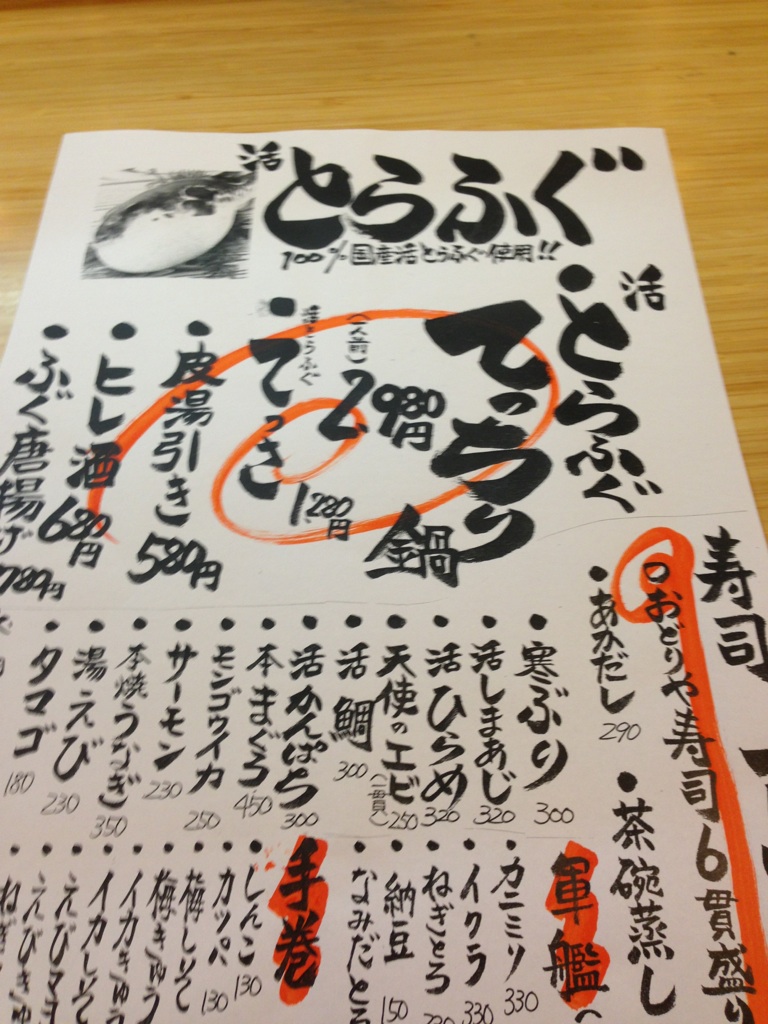 活とらふぐ
100%国産活とらふぐ使用!!
活
・とらふぐ
てっちり
鍋
2,980円
(一人前)
活とらふぐ
・てっさ
1,280円
・皮湯引き
580円
・ヒレ酒
680円
・ふぐ唐揚げ
780円
寿司
○おどりや寿司6貫盛り
・あかだし
290
・茶碗蒸し
・寒ぶり
300
・活しまあじ
320
・活ひらめ
320
・天使のエビ
(一貫)
250
・活鯛
300
・活かんぱち
300
・本まぐろ
450
・モンゴウイカ
250
・サーモン
230
・本焼うなぎ
350
・湯えび
230
・タマゴ
180
軍艦
・カニミソ
330
・イクラ
330
・ねぎとろ
・納豆
150
・なみだとろ
手巻
・しんこ
130
・カッパ
130
・梅しそ
・梅きゅう
・イカきゅう
・イカしそ